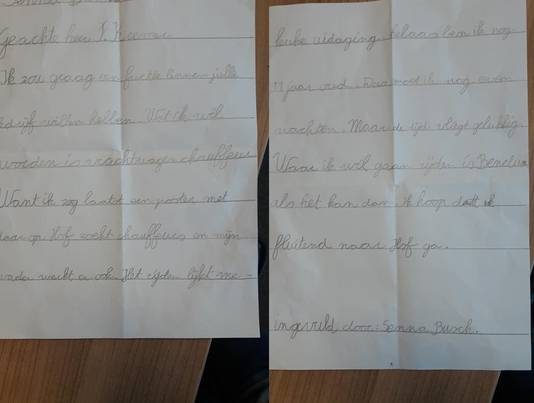 Senna
Geachte heer
Ik zou graag een functie binnen jullie
bedrijf willen hebben. Wat ik wil
worden is vrachtwagen chauffeur
Want ik zag laatst een poster met
daar op Hof zoekt chauffeurs en mijn
vader werkt er ook. Het rijden lijkt me
leuke uitdaging helaas ben ik nog
11 jaar oud. Dus moet ik nog even
wachten. Maar de tijd vliegt gelukkig.
Waar ik wil gaan rijden is Benelux
als het kan dan. Ik hoop dat ik
fluitend naar Hof ga.
ingevuld door: Senna Busch.